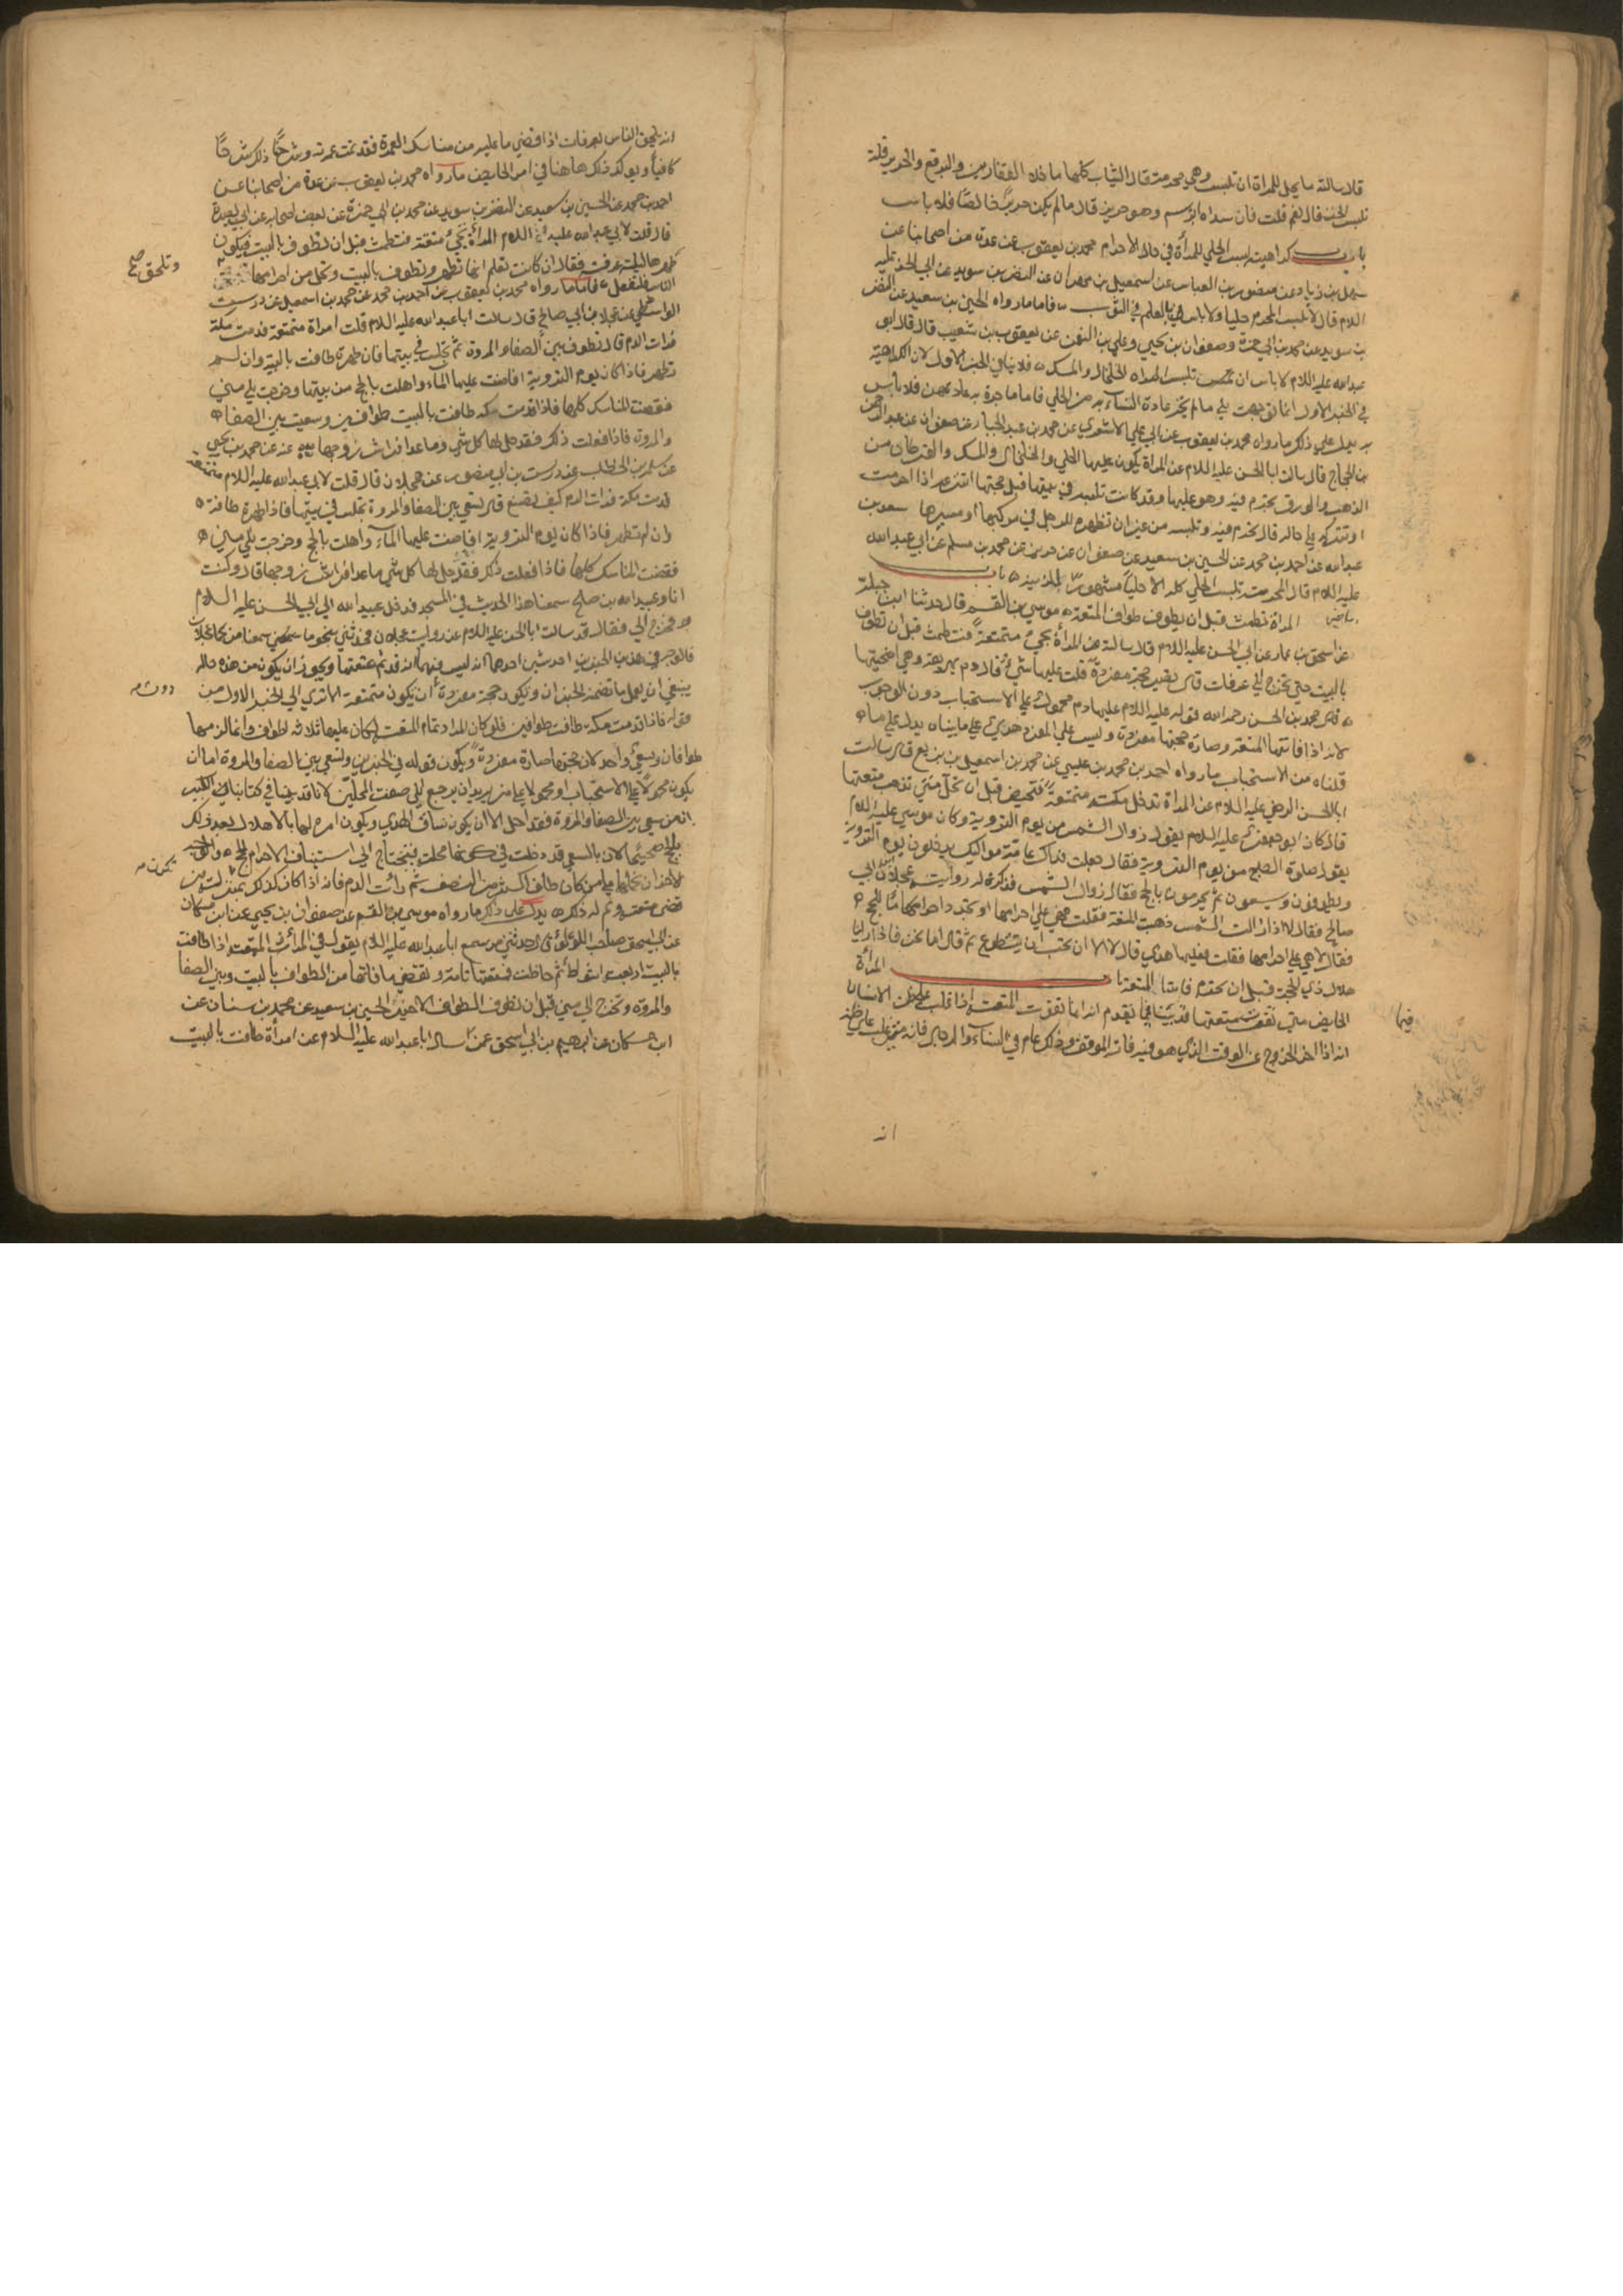 قال سالته ما يحل للمراة ان تلبس وهي محرمة قال الثياب كلها ما خلا القفازين والبرقع والحرير قلت
تلبس الخز قال نعم قلت فان سداه ابرسم وهو حرير قال ما لم يكن حريرًا خالصًا فلا باس
باب كراهية لبس الحلي للمرأة في حال الاحرام محمد بن يعقوب عن عدة من اصحابنا عن
سهل بن زياد عن منصور بن العباس عن اسمعيل بن مهران عن النضر بن سويد عن ابي الحسن عليه
اللام قال لا تلبس المحرم حليا ولا باس بالعلم في الثوب فاما ما رواه الحسين بن سعيد عن النضر
بن سويد عن محمد بن ابي حمزة وصفوان بن يحيى وعلي بن النعمن عن يعقوب بن شعيب قال قال ابو
عبدالله عليه اللام لا باس ان تلبس المراه الخلخال والمسك فلا ينافي الخبر الاول لان الكراهية
في الخبر الاول انما توجهت الى ما لم يجر عادة النساء به من الحلي فاما ما جرت به عادتهن فلا باس
به يدل على ذلك ما رواه محمد بن يعقوب عن ابي علي الاشعري عن محمد بن عبد الجبار عن صفوان عن عبد الرحمن
بن الحجاج قال سالت ابا الحسن عليه اللام عن المراة يكون عليها الحلي والخلخال والمسك والقرطان من
الذهب والورق تحرم فيه وهو عليها وقد كانت تلبسه في بيتها قبل حجها اتنزعه اذا احرمت
او تتركه على حاله قال تحرم فيه وتلبسه من غير ان تظهره للرجل في مركبها او مسيرها سعد بن
عبدالله عن احمد بن محمد عن الحسين بن سعيد عن صفوان عن حريز عن محمد بن مسلم عن ابي عبدالله
عليه اللام قال المحرمة تلبس الحلي كله الا حليا مشهورًا للزينة باب
المراة تطمث قبل ان يطوف طواف المتعة موسى بن القسم قال حدثنا ابن جبلة
عن اسحق بن عمار عن ابي الحسن عليه اللام قال سالته عن المرأة تجيء متمتعةً فتطمث قبل ان تطوف
بالبيت حتي تخرج الى عرفات قال تصير حجة مفردة قلت عليها شيء قال دم تهريقه وهي اضحيتها
قال محمد بن الحسن رحمه الله قوله عليه اللام عليها دم محمول على الاستحباب دون الوجوب
لانه اذا فاتتها المتعة وصارت حجتها مفردة وليس على المفرد هدي على ما بيناه يدل على ما
قلناه من الاستحباب ما رواه احمد بن محمد بن عيسى عن محمد بن اسمعيل بن بزيع قال سالت
ابا الحسن الرضي عليه اللام عن المراة تدخل مكة متمتعةً فتحيض قبل ان تحل متي تذهب متعتها
قال كان ابو جعفر عليه اللام يقول زوال الشمس من يوم التروية وكان موسى عليه اللام
يقول صلوة الصبح من يوم التروية فقال جعلت فداك عامة مواليك يدخلون يوم التروية
ويطوفون ويسعون ثم يحرمون بالحج فقال زوال الشمس فذكرت له رواية عجلان ابي
صالح فقال لا اذا زالت الشمس ذهبت المتعة فقلت فهي على احرامها او تجدد احرامها للحج
فقال لا هي على احرامها فقلت فعليها هدي قال لا الا ان تحب ان يتطوع ثم قال اما نحن فاذا راينا
هلال ذي الحجة قبل ان نحرم فاتتنا المتعة المرأة
الحايض متى تفوت متعتها قد بينا فيما تقدم انه انما تفوت المتعة اذا غلب على ظن الانسان
فيها
انه اذا اخر الخروج عن الوقت الذي هو فيه فاته الموقف وذلك عام في النساء والرجال فانه متى غلب على ظنه
انه
انه يلحق الناس بعرفات اذا قضي ما عليه من مناسك العمرة فقد تمت عمرته وشرحنا ذلك شرحًا
كافيا ويوكد ذلك هاهنا في امر الحايض ما رواه محمد بن يعقوب عن عدة من اصحابنا عن
احمد بن محمد عن الحسين بن سعيد عن النضر بن سويد عن محمد بن ابي حمزة عن بعض اصحابه عن ابي بصير
قال قلت لابي عبدالله عليه اللام المرأة تجيء متمتعة فتطمث قبل ان تطوف بالبيت فيكون
طهرها ليلة عرفة فقال ان كانت تعلم انها تطهر وتطوف بالبيت وتحل من احرامها
وتلحق صح
الناس فلتفعل فاما ما رواه محمد بن يعقوب عن احمد بن محمد عن محمد بن اسمعيل عن درست
الواسطي عن عجلان ابي صالح قال سالت ابا عبدالله عليه اللام قلت امراة متمتعة قدمت مكة
فرات الدم قال تطوف بين الصفا والمروة ثم تجلس في بيتها فان طهرت طافت بالبيت وان لم
تطهر فاذا كان يوم التروية افاضت عليها الماء واهلت بالحج من بيتها وخرجت الى منى
فقضت المناسك كلها فاذا قدمت مكة طافت بالبيت طوافين وسعيت بين الصفا
والمروة فاذا فعلت ذلك فقد حل لها كل شي ما عدا فراش زوجها عنه عن محمد بن يحيى
عن سلمة بن الخطاب عن درست بن ابي منصور عن عجلان قال قلت لابي عبدالله عليه اللام متمتعة
قدمت مكة فرات الدم كيف تصنع قال تسعى بين الصفا والمروة تجلس في بيتها فاذا طهرت طافت
وان لم تطهر فاذا كان يوم التروية افاضت عليها الماء واهلت بالحج وخرجت الى منى
فقضت المناسك كلها فاذا فعلت ذلك فقد حل لها كل شي ما عدا فراش زوجها قال وكنت
انا وعبيدالله بن صالح سمعنا هذا الحديث في المسجد فدخل عبيدالله الى ابي الحسن عليه السلام
فخرج الي فقال قد سالت ابا الحسن عليه اللام عن رواية عجلان فحدثني نحو ما سمعنا من عجلان
فالوجه في هذين الخبرين احد شيئين احدهما انه ليس فيهما انه قد تم متعتها ويجوز ان يكون من هذه حاله
ينبغي ان يعمل ما تضمنه الخبران ويكون حجة مفردة ان يكون متمتعة الا ترى الى الخبر الاول من
دون
قوله فاذا قدمت مكة طافت طوافين فلو كان المراد تمام المتعة لكان عليها ثلاثة اطواف وانما لزمها
طوافان وسعي واحد لان حجتها صارت مفردة ويكون قوله في الخبرين وتسعى بين الصفا والمروة اما ان
يكون محمولا على الاستحباب او محمولا على من يريد ان يرجع الى صفة المحلين لانا قد بينا في كتابنا الكبير
انه من سعي بين الصفا والمروة فقد احل الا ان يكون ساق الهدي ويكون امره لها بالاهلال بعد ذلك
بالحج صحيحا لان بالسعي قد دخلت في كونها محلة فتحتاج الى استيناف الاحرام للحج والوجه
تكون
الاخر ان نحملها على من كان طاف اكثر من النصف ثم رأت الدم فانه اذا كان كذلك بمنزلة من
قضى متعته وتم له ذلك يدل على ذلك ما رواه موسى بن القسم عن صفوان بن يحيى عن ابن مسكان
عن ابي اسحق صاحب اللؤلؤ قال حدثني من سمع ابا عبدالله عليه اللام يقول في المرأة المتمتعة اذا طافت
بالبيت اربعة اشواط ثم حاضت فمتعتها تامة وتقضي ما فاتها من الطواف بالبيت وبين الصفا
والمروة وتخرج الى منى قبل ان تطوف الطواف الاخير الحسين بن سعيد عن محمد بن سنان عن
ابن مسكان عن ابرهيم بن ابي اسحق عمن سال ابا عبدالله عليه السلام عن امرأة طافت بالبيت